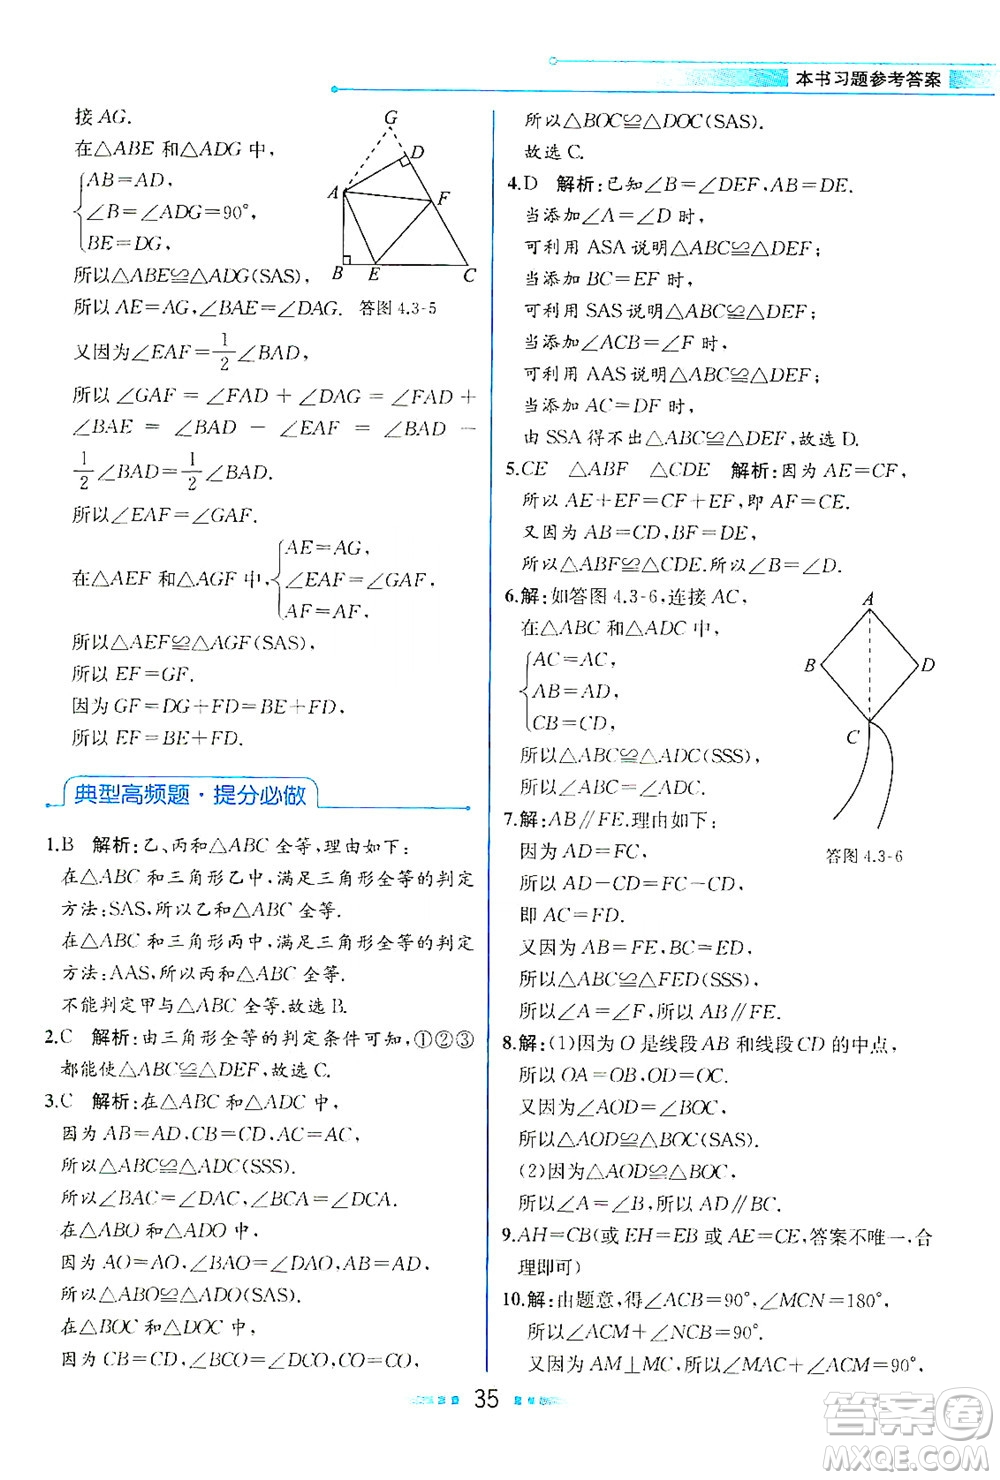 本书习题参考答案
接AG.
在△ABE 和△ADG 中,
AB=AD,
∠B=∠ADG=90°,
BE=DG,
所以△ABE≌△ADG(SAS).
所以 AE=AG,∠BAE=∠DAG.
G
D
A
F
B
E
C
答图 4.3-5
又因为∠EAF=1/2∠BAD,
所以 ∠GAF = ∠FAD + ∠DAG = ∠FAD +
∠BAE = ∠BAD - ∠EAF = ∠BAD -
1/2∠BAD=1/2∠BAD.
所以∠EAF=∠GAF.
在△AEF 和△AGF 中,
AE=AG,
∠EAF=∠GAF,
AF=AF,
所以△AEF≌△AGF(SAS),
所以 EF=GF.
因为 GF=DG+FD=BE+FD,
所以 EF=BE+FD.
典型高频题·提分必做
1.B 解析:乙、丙和△ABC 全等,理由如下:
在△ABC 和三角形乙中,满足三角形全等的判定
方法:SAS,所以乙和△ABC 全等.
在△ABC 和三角形丙中,满足三角形全等的判定
方法:AAS,所以丙和△ABC 全等.
不能判定甲与△ABC 全等.故选 B.
2.C 解析:由三角形全等的判定条件可知,①②③
都能使△ABC≌△DEF.故选 C.
3.C 解析:在△ABC 和△ADC 中,
因为 AB=AD,CB=CD,AC=AC,
所以△ABC≌△ADC(SSS).
所以∠BAC=∠DAC,∠BCA=∠DCA.
在△ABO 和△ADO 中,
因为 AO=AO,∠BAO=∠DAO,AB=AD,
所以△ABO≌△ADO(SAS).
在△BOC 和△DOC 中,
因为 CB=CD,∠BCO=∠DCO,CO=CO,
所以△BOC≌△DOC(SAS).
故选 C.
4.D 解析:已知∠B=∠DEF,AB=DE.
当添加∠A=∠D 时,
可利用 ASA 说明△ABC≌△DEF;
当添加 BC=EF 时,
可利用 SAS 说明△ABC≌△DEF;
当添加∠ACB=∠F 时,
可利用 AAS 说明△ABC≌△DEF;
当添加 AC=DF 时,
由 SSA 得不出△ABC≌△DEF,故选 D.
5.CE △ABF △CDE 解析:因为 AE=CF,
所以 AE+EF=CF+EF,即 AF=CE.
又因为 AB=CD,BF=DE,
所以△ABF≌△CDE.所以∠B=∠D.
6.解:如答图 4.3-6,连接 AC,
在△ABC 和△ADC 中,
AC=AC,
AB=AD,
CB=CD,
所以△ABC≌△ADC(SSS).
所以∠B=∠D.
A
B
D
C
答图 4.3-6
7.解:AB∥FE.理由如下:
因为 AD=FC,
所以 AD-CD=FC-CD,
即 AC=FD.
又因为 AB=FE,BC=ED,
所以△ABC≌△FED(SSS),
所以∠A=∠F,所以 AB∥FE.
8.解:(1)因为 O 是线段 AB 和线段 CD 的中点,
所以 OA=OB,OD=OC.
又因为∠AOD=∠BOC,
所以△AOD≌△BOC(SAS).
(2)因为△AOD≌△BOC,
所以∠A=∠B,所以 AD∥BC.
9.AH=CB(或 EH=EB 或 AE=CE,答案不唯一,合
理即可)
10.解:由题意,得∠ACB=90°,∠MCN=180°,
所以∠ACM+∠NCB=90°.
又因为 AM⊥MC,所以∠MAC+∠ACM=90°,
35
答案圈
MXQE.COM